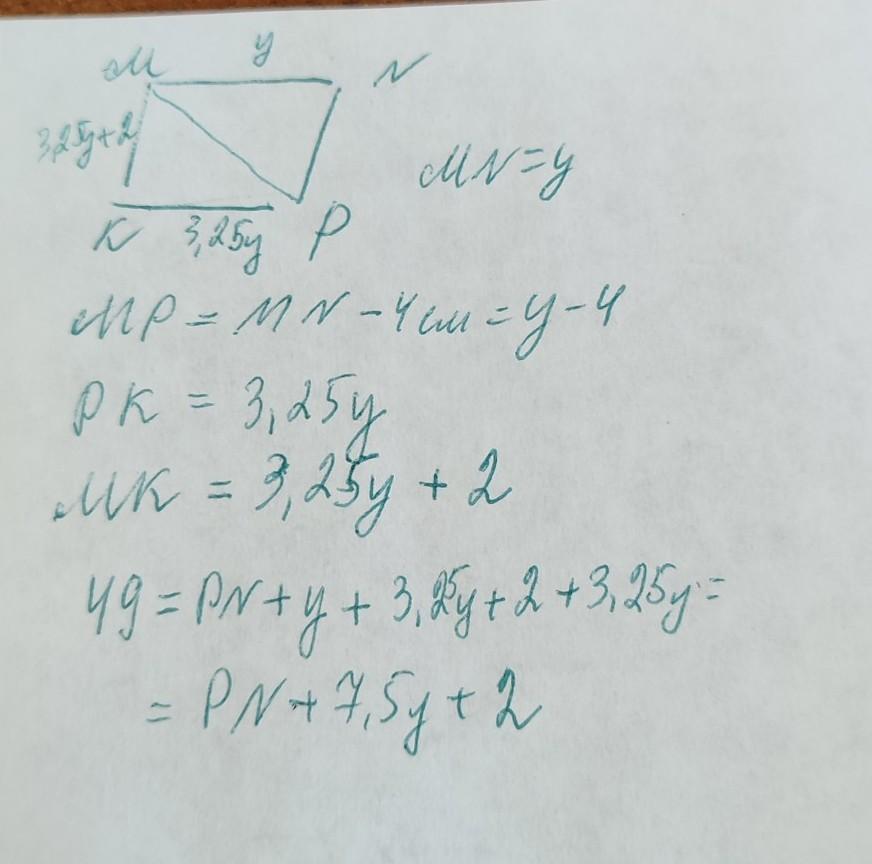 y
M N
3,25y+2
MN=y
K 3,25y P
MP = MN -4см = y-4
PK = 3,25y
MK = 3,25y + 2
49 = PN + y + 3,25y + 2 + 3,25y =
= PN + 7,5y + 2